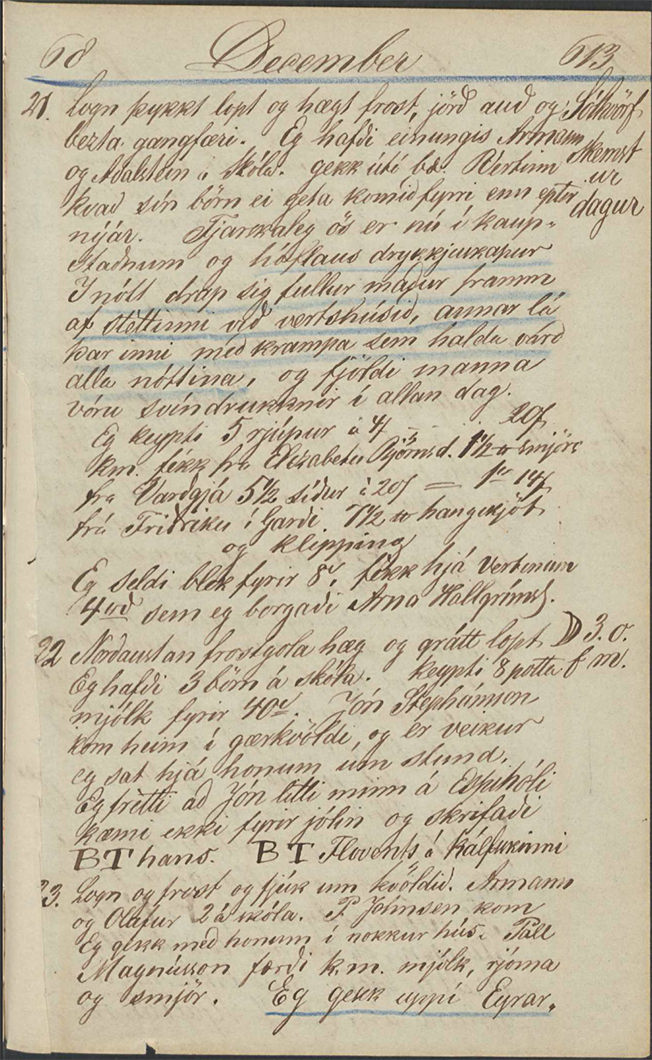 68 December 613
21. Logn þykkt lopt og hægt frost, jörð auð og Sólhvörf
bezta gangfæri. Eg hafði einungis Armann Skemst
og Aðalstein á skóla. gekk úti bæ. Vertinn ur
kvað sín börn ei geta komið fyrri enn eptir dagur
nýár. Fjarskaleg ös er nú í kaup-
staðnum og hóflaus drykkjuskapur
I nótt drap sig fullur maður framm
af stéttinni við vertshúsið, annar lá
þar inni með krampa sem halda varð
alla nóttina, og fjöldi manna
vóru svíndrukknir í allan dag.
Eg keypti 5 rjúpur á 4 20
k.m. fékk frá Elisabetu Björnsd. 1½ smjörs
frá Varðgjá 5½ síður á 20 =
frá Friðriku í Garði 7½ hangikjöt
og klipping
Eg seldi blek fyrir 8, fékk hjá vertinum
4 sem eg borgaði Arna Hallgríms.
22 Norðaustan frostgola hæg og grátt lopt 3. o.
Eg hafði 3 börn á skóla. keypti 8 potta f m.
mjólk fyrir 40. Jón Stephansson
kom heim í gærkvöldi, og er veikur
eg sat hjá honum um stund.
Eg frétti að Jón litli minn á Espihóli
kæmi ekki fyrir jólin og skrifaði
BT hans. BT Flovents á Kálfskinni
23. Logn og frost og fjúk um kvöldið. Armann
og Olafur 2 á skóla. P. Johnsen kom
Eg gekk með honum í nokkur hús. Páll
Magnússon færði k.m. mjólk, rjóma
og smjör. Eg gekk uppí Eyrar-